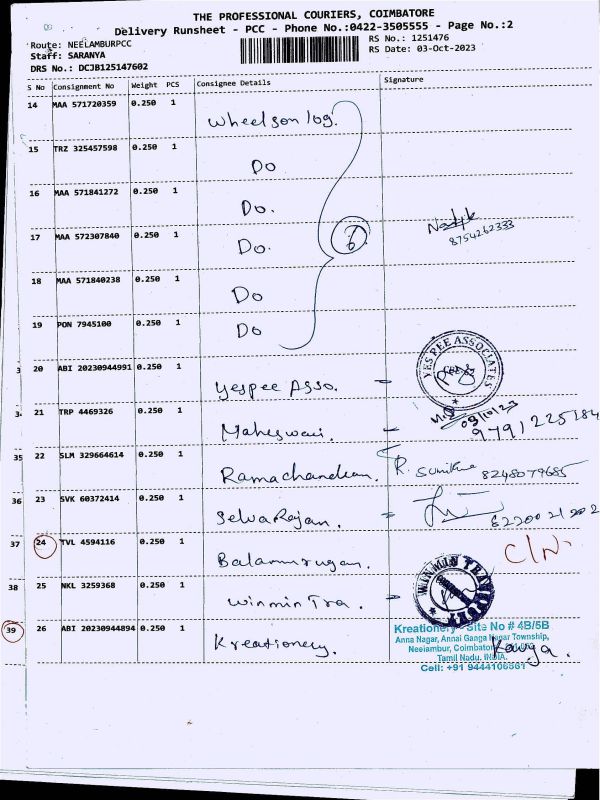 THE PROFESSIONAL COURIERS, COIMBATORE
Delivery Runsheet - PCC - Phone No.:0422-3505555 - Page No.:2
Route: NEELAMBURPCC RS No.: 1251476
Staff: SARANYA RS Date: 03-Oct-2023
DRS No.: DCJB125147602
S No Consignment No Weight PCS Consignee Details Signature
14 MAA 571720359 0.250 1 Wheelsonlog.
15 TRZ 325457598 0.250 1 Do
16 MAA 571841272 0.250 1 Do.
17 MAA 572307840 0.250 1 Do. 6 8754262333
18 MAA 571840238 0.250 1 Do
19 PON 7945100 0.250 1 Do
20 ABI 20230944991 0.250 1 Yespee Asso. - YES PEE ASSOCIATES
03/10/23
34 21 TRP 4469326 0.250 1 Maheswari. - 9791225184
35 22 SLM 329664614 0.250 1 Ramachandran. R. 8248079685
36 23 SVK 60372414 0.250 1 SelvaRajan. -
37 24 TVL 4594116 0.250 1 Balamurugan. C/N.
38 25 NKL 3259368 0.250 1 WinminTra. - WINMIN
39 26 ABI 20230944894 0.250 1 Kreationery.
Kreationery - Site No # 4B/5B
Anna Nagar, Annai Ganga Nagar Township,
Neelambur, Coimbatore
Tamil Nadu, INDIA.
Cell: +91 9444106561